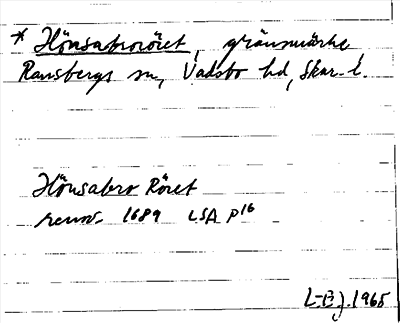 * Hönsabroröret, gränsmärke
Ransbergs sn, Vadsbo hd, Skar. l.
Hönsabro Röret
renov. 1689 LSA P16
L-B J. 1965